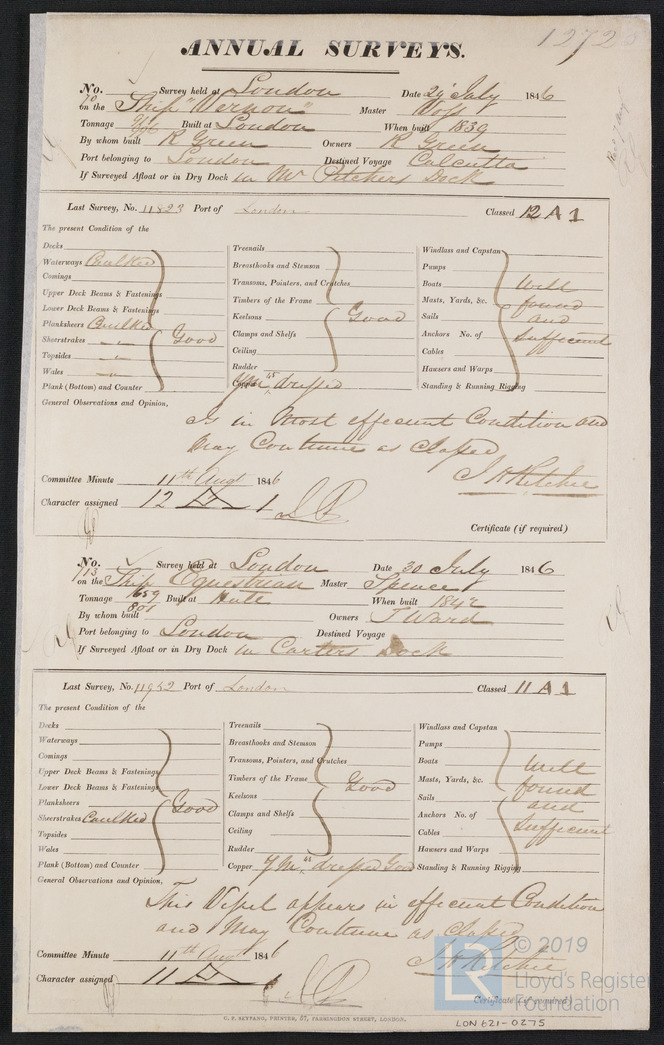 1272
ANNUAL SURVEYS.
No. 70 Survey held at London Date 29 July 1846
on the Ship "Vernon" Master Voss
Tonnage Built at London When built 1839
By whom built R Green Owners R Green
Port belonging to London Destined Voyage Calcutta
If Surveyed Afloat or in Dry Dock in Mr Pitchers Dock
Last Survey, No. 11823 Port of London Classed 12 A 1
The present Condition of the
Decks
Waterways Caulked
Comings
Upper Deck Beams & Fastenings
Lower Deck Beams & Fastenings
Planksheers Caulked
Sheerstrakes "
Topsides "
Wales "
Plank (Bottom) and Counter
Good
Treenails
Breasthooks and Stemson
Transoms, Pointers, and Crutches
Timbers of the Frame
Keelsons
Clamps and Shelfs
Ceiling
Rudder
Copper YM 45 dressed
Good
Windlass and Capstan
Pumps
Boats
Masts, Yards, &c.
Sails
Anchors No. of
Cables
Hausers and Warps
Standing & Running Rigging
Well
found
and
Sufficient
General Observations and Opinion,
Is in Most efficient Condition and
May Continue as Classed
J H Ritchie
Committee Minute 11th Augt 1846
Character assigned 12 A 1
Certificate (if required)
No. 713 Survey held at London Date 30 July 1846
on the Ship Equestrian Master Spence
Tonnage 801 Built at Hull When built 1842
By whom built Owners J Ward
Port belonging to London Destined Voyage
If Surveyed Afloat or in Dry Dock in Carters Dock
Last Survey, No. 11952 Port of London Classed 11 A 1
The present Condition of the
Decks
Waterways
Comings
Upper Deck Beams & Fastenings
Lower Deck Beams & Fastenings
Planksheers
Sheerstrakes Caulked
Topsides
Wales
Plank (Bottom) and Counter
Good
Treenails
Breasthooks and Stemson
Transoms, Pointers, and Crutches
Timbers of the Frame
Keelsons
Clamps and Shelfs
Ceiling
Rudder
Copper YM 44 dressed Good
Good
Windlass and Capstan
Pumps
Boats
Masts, Yards, &c.
Sails
Anchors No. of
Cables
Hausers and Warps
Standing & Running Rigging
Well
found
and
Sufficient
General Observations and Opinion,
This Vessel appears in efficient Condition
and May Continue as Classed
J H Ritchie
Committee Minute 11th Augt 1846
Character assigned 11 A 1
Certificate (if required)
C. F. SEYFANG, PRINTER, 57, FARRINGDON STREET, LONDON.
LON 621-0275
LR
© 2019
Lloyd's Register
Foundation